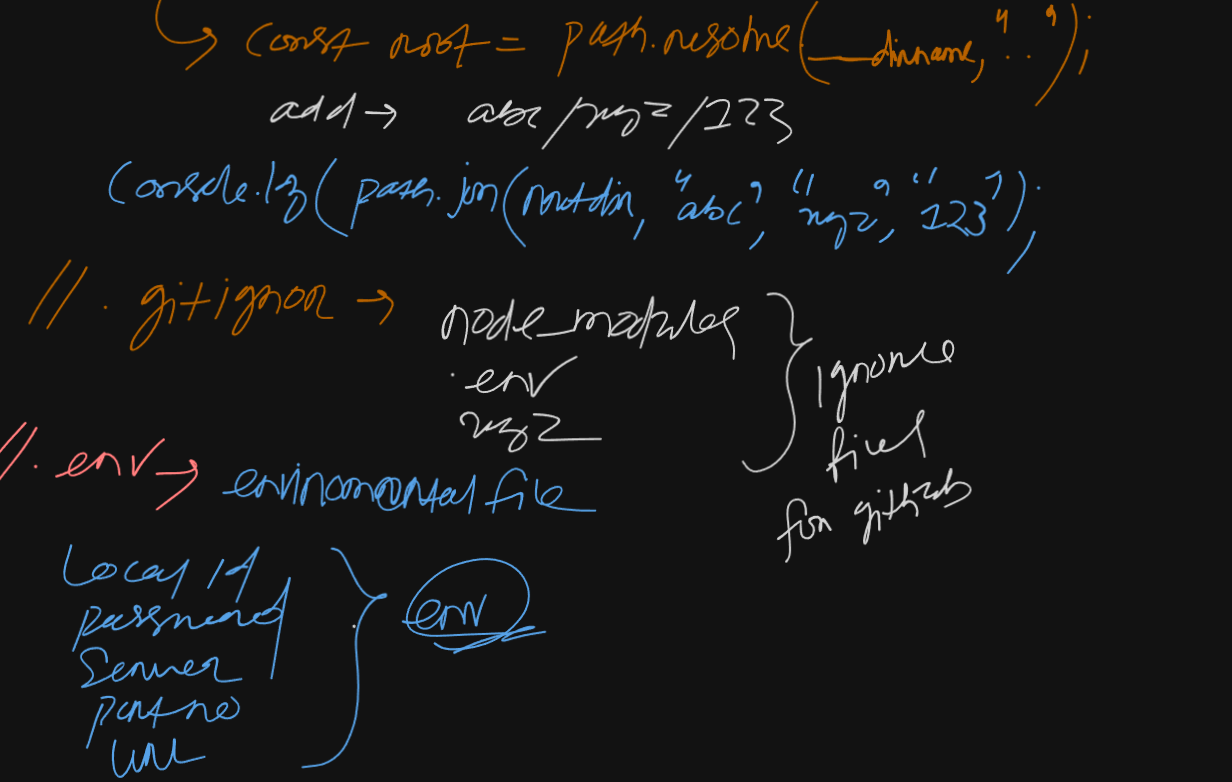 ↳ const root = path.resolve(__dirname, "..");
add → abc/xyz/123
console.log(path.join(rootdir, "abc", "xyz", "123");
// .gitignor →
node_modules
.env
xyz
ignore
files
for github
// .env → envirnomental file
Local id
password
Server
port no
URL
env